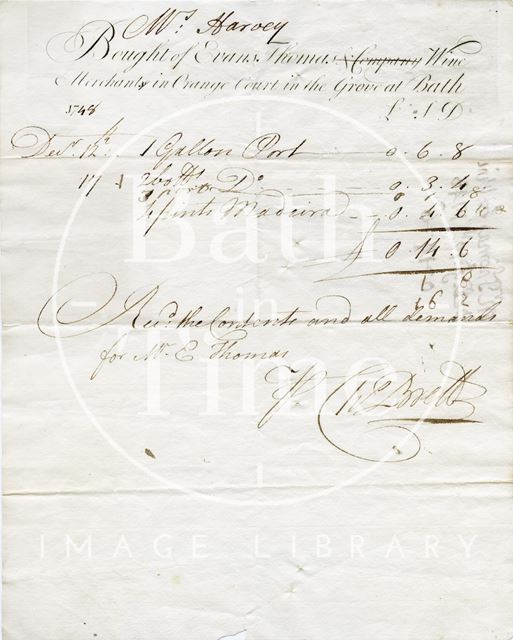 Mrs Harvey
Bought of Evan Thomas & Company Wine
Merchants in Orange Court in the Grove at Bath
1748 £ S D
Decr 12th 1 Gallon Port 0. 6. 8
17 2 botts Do 0. 3. 4
3 pints Madeira 0. 4. 6
£ 0. 14. 6
Recd. the Contents and all demands
for Mr. E Thomas
Bath
in
Time
IMAGE LIBRARY